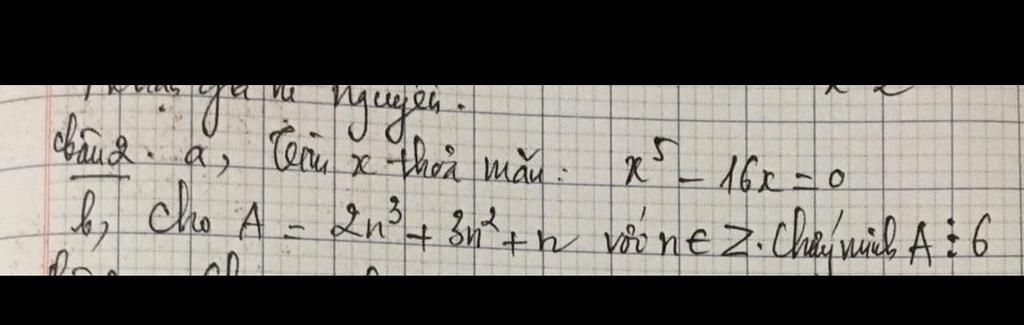 nguyên.
Câu 2. a, Tìm x thoả mãn: x⁵ - 16x = 0
b, Cho A = 2n³ + 3n² + n với n ∈ Z. Chứng minh A ⋮ 6